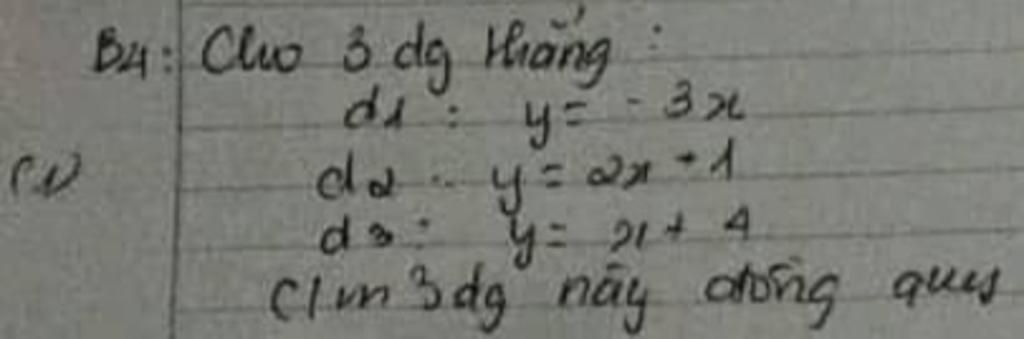 B4: Cho 3 dg thẳng:
d1: y = -3x
d2: y = 2x + 1
d3: y = x + 4
C/m 3 dg này đồng quy